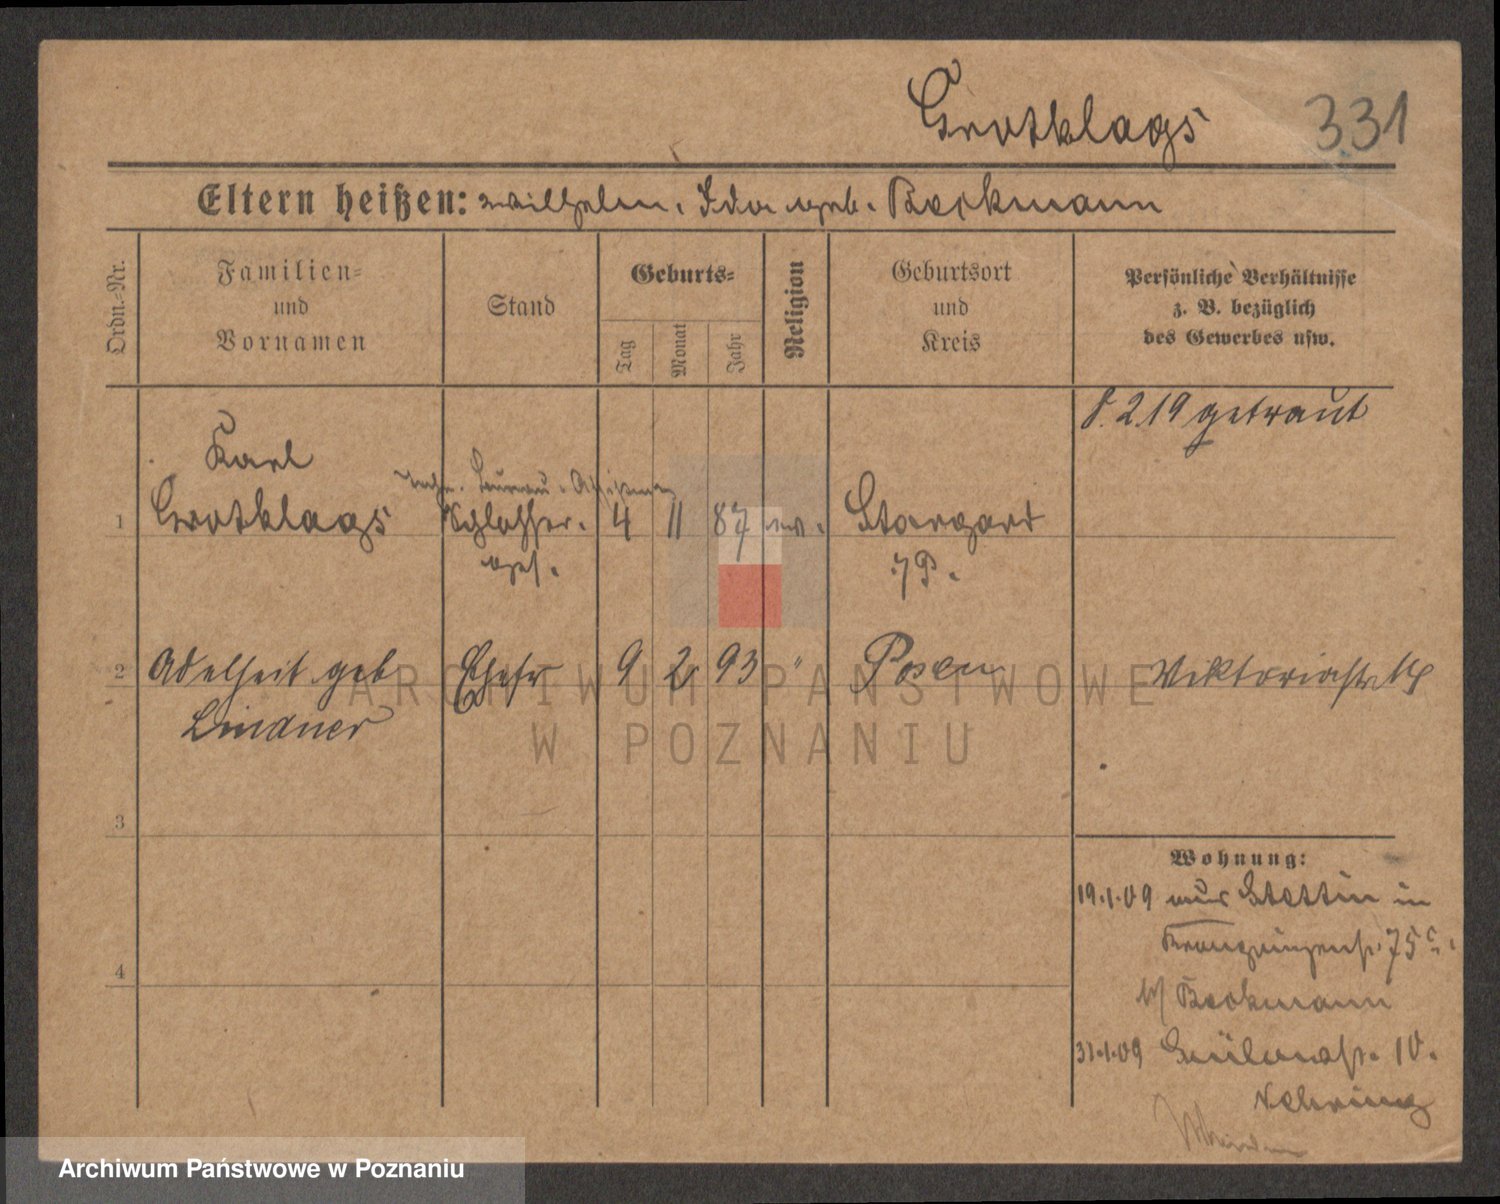 Grotklags 331
Eltern heißen: Wilhelm. Ida geb. Beckmann
Ordn.-Nr.
Familien-
und
Vornamen
Stand
Geburts-
Tag
Monat
Jahr
Religion
Geburtsort
und
Kreis
Persönliche Verhältnisse
z. B. bezüglich
des Gewerbes usw.
8.2.19 getraut
Karl
techn. Bureau-Assistent
1 Grotklags Schlosser- 4 11 87 ev. Stargard
ges. i/P.
2 Adelheit geb Ehefr 9 2 93 " Posen Viktoriastr
Lindner
3
4
Wohnung:
19.1.09 aus Stettin in
Kronprinzenstr. 75 c.
b/ Beckmann
31.1.09 10.
Nehring
ARCHIWUM PAŃSTWOWE
W POZNANIU
Archiwum Państwowe w Poznaniu